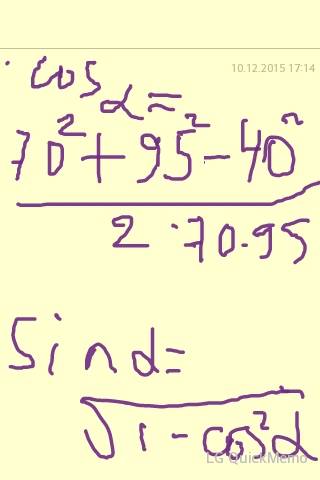 10.12.2015 17:14
cos α =
70² + 95² - 40²
2 · 70 . 95
Sin α =
√1 - cos² α
LG QuickMemo